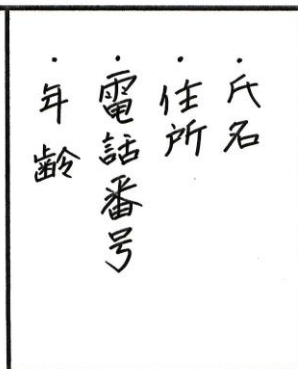 ・氏名
・住所
・電話番号
・年齢